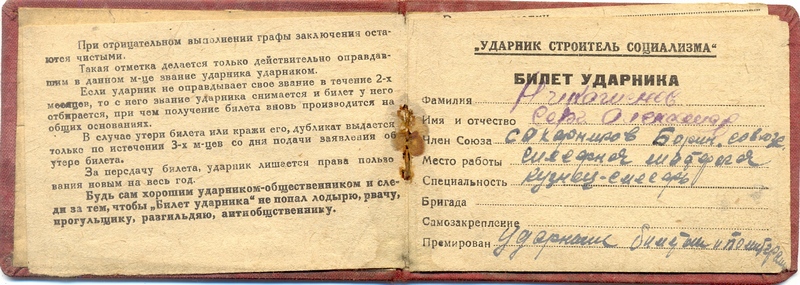 При отрицательном выполнении графы заключения оста-
ются чистыми.
Такая отметка делается только действительно оправдав-
шим в данном м-це звание ударника ударником.
Если ударник не оправдывает свое звание в течение 2-х
месяцев, то с него звание ударника снимается и билет у него
отбирается, при чем получение билета вновь производится на
общих основаниях.
В случае утери билета или кражи его, дубликат выдается
только по истечении 3-х м-цев со дня подачи заявления об
утере билета.
За передачу билета, ударник лишается права пользо-
вания новым на весь год.
Будь сам хорошим ударником-общественником и сле-
ди за тем, чтобы „Билет ударника" не попал лодырю, рвачу,
прогульщику, разгильдяю, антиобщественнику.
„УДАРНИК СТРОИТЕЛЬ СОЦИАЛИЗМА"
БИЛЕТ УДАРНИКА
Фамилия
Имя и отчество
Член Союза сахарников
Место работы слесарная
Специальность кузнец-слесарь
Бригада
Самозакрепление
Премирован ударным билетом и